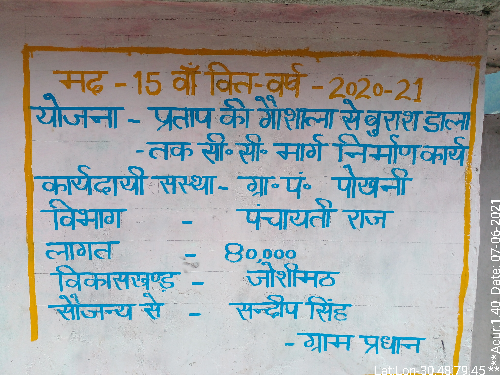 मद - 15 वाँ वित-वर्ष - 2020-21
योजना - प्रताप की गौशाला से बुराश डाला
- तक सी॰ सी॰ मार्ग निर्माण कार्य
कार्यदायी सस्था - ग्रा॰ पं॰ पोखनी
विभाग - पंचायती राज
लागत - 80,000
विकासखण्ड - जोशीमठ
सौजन्य से - सन्दीप सिंह
- ग्राम प्रधान
Lat Lon-30.48,79.45
***Acur:1.40 Date: 07-06-2021